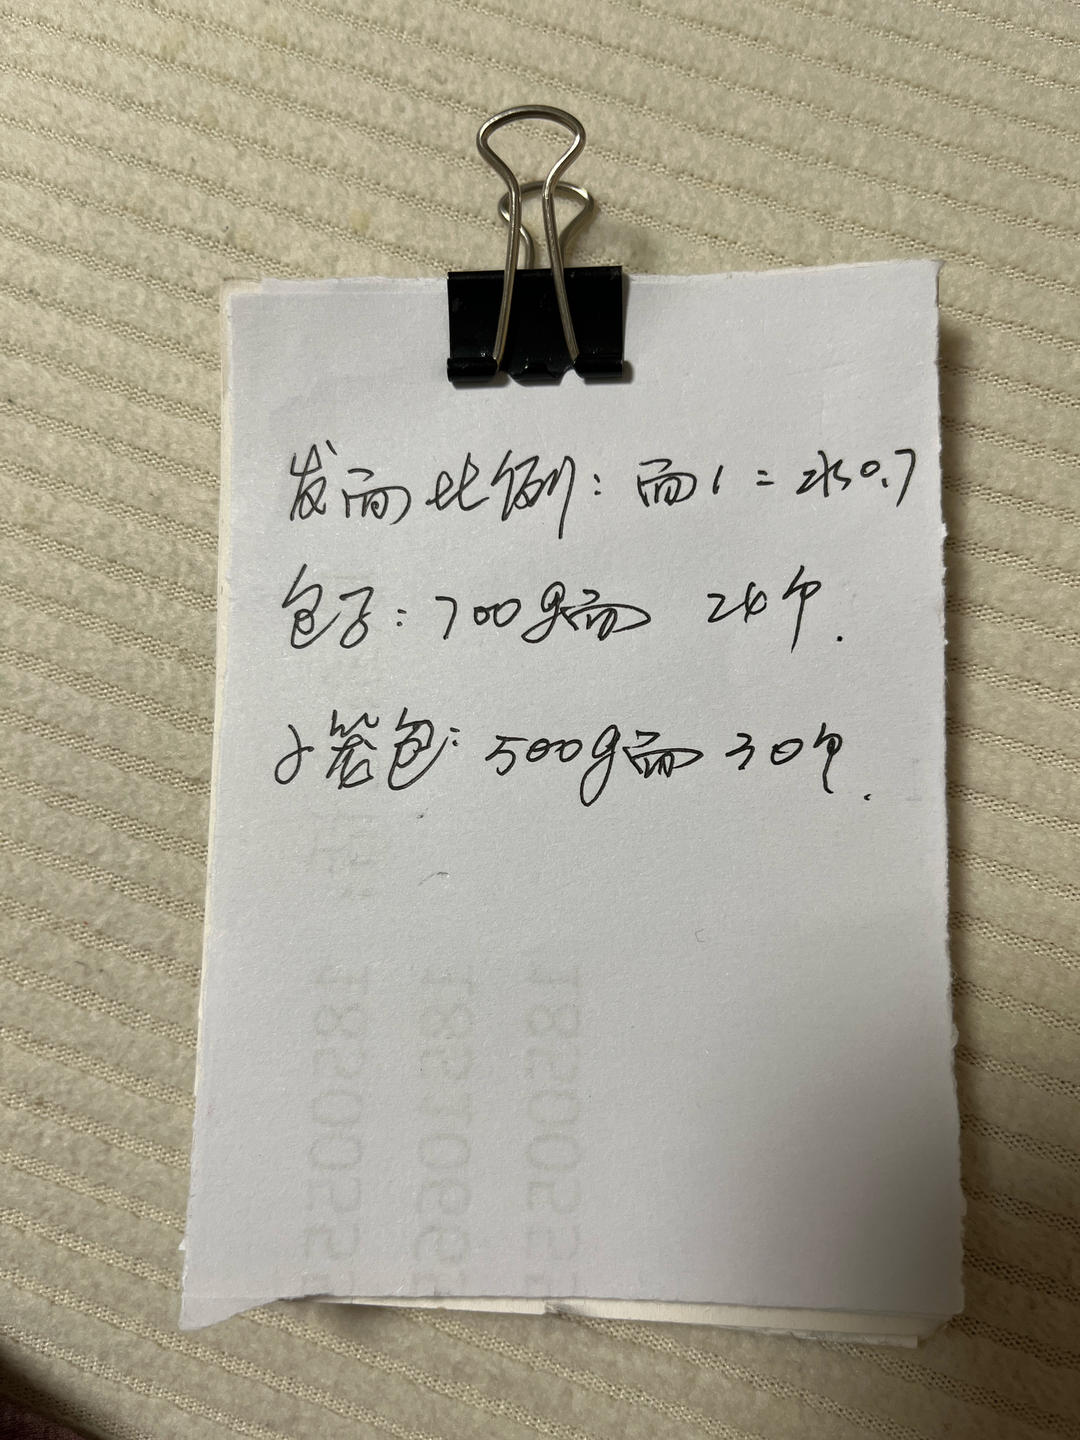 发面比例：面1=水0.7
包子：700g面 24个.
小笼包：500g面 30个.